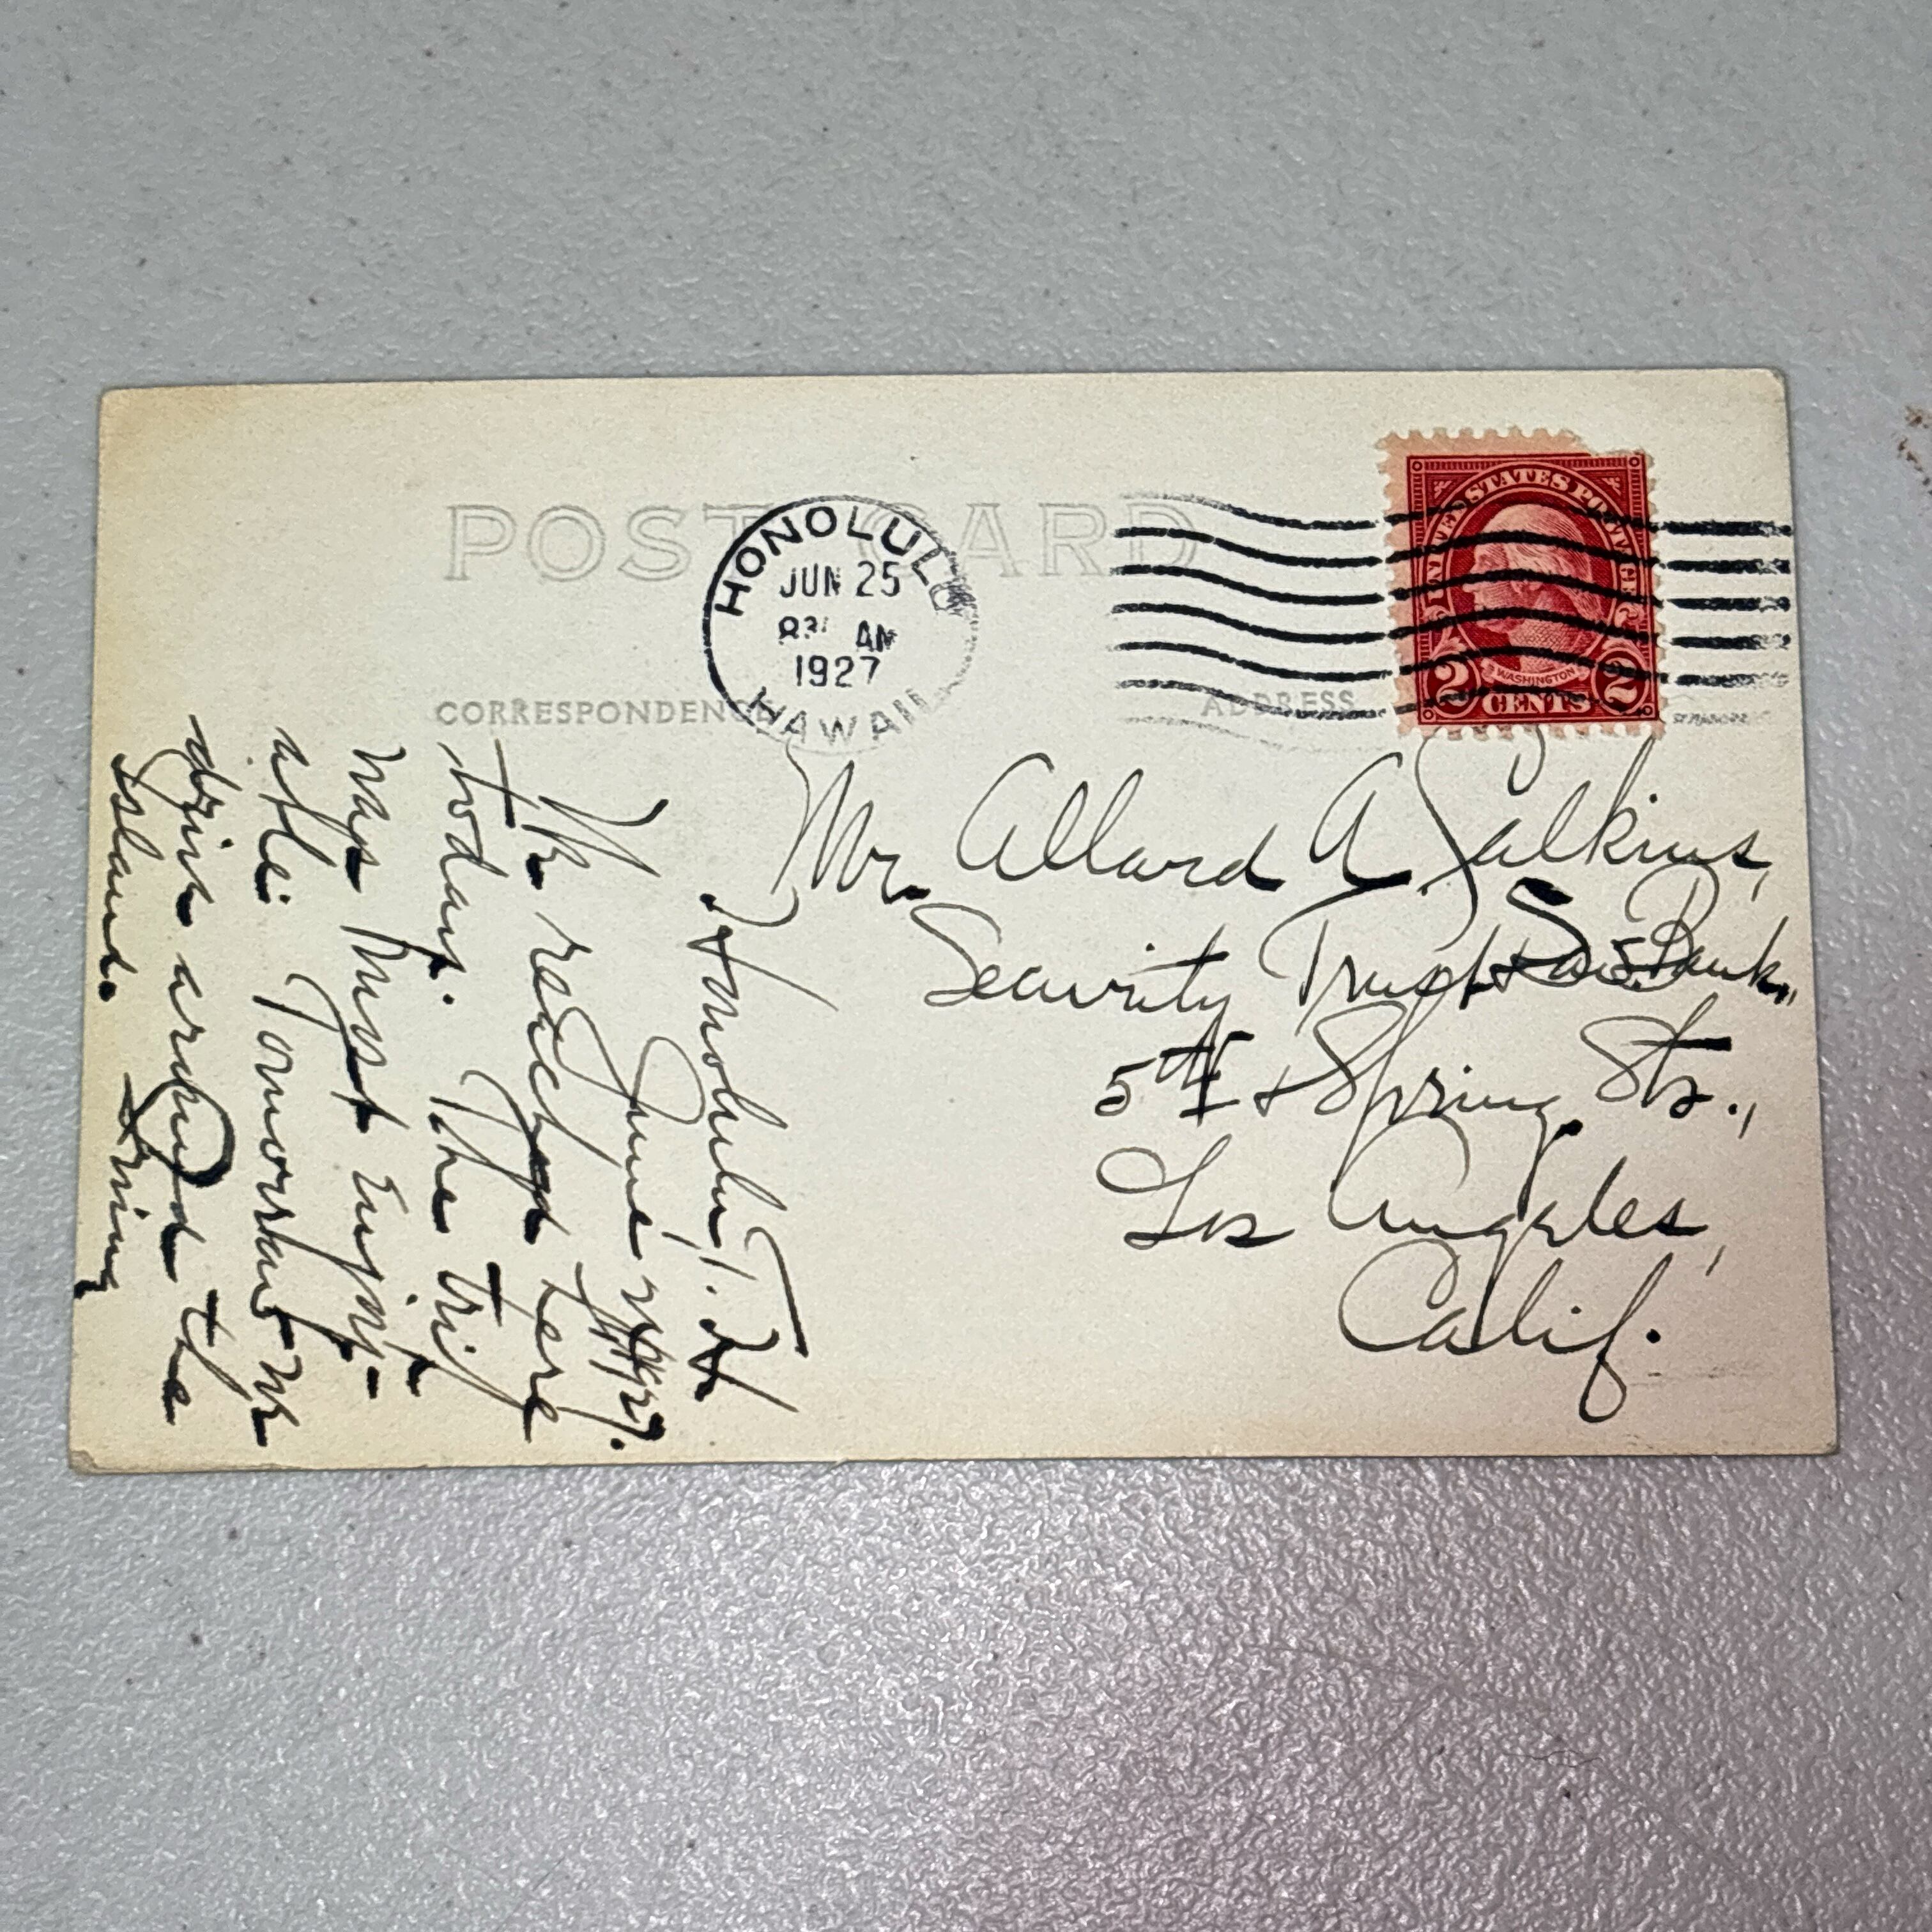 POST CARD
HONOLULU
JUN 25
AM
1927
HAWAII
UNITED STATES POSTAGE
WASHINGTON
2 CENTS 2
CORRESPONDENCE
ADDRESS
Mr. Allard A. Calkins,
Security Trust & Sav. Bank,
5th & Spring Sts.,
Los Angeles,
Calif.
Honolulu, T. H
June 1927.
We reached here
today. The trip
was most enjoy-
able. Tomorrow we
drive around the
island. Irving